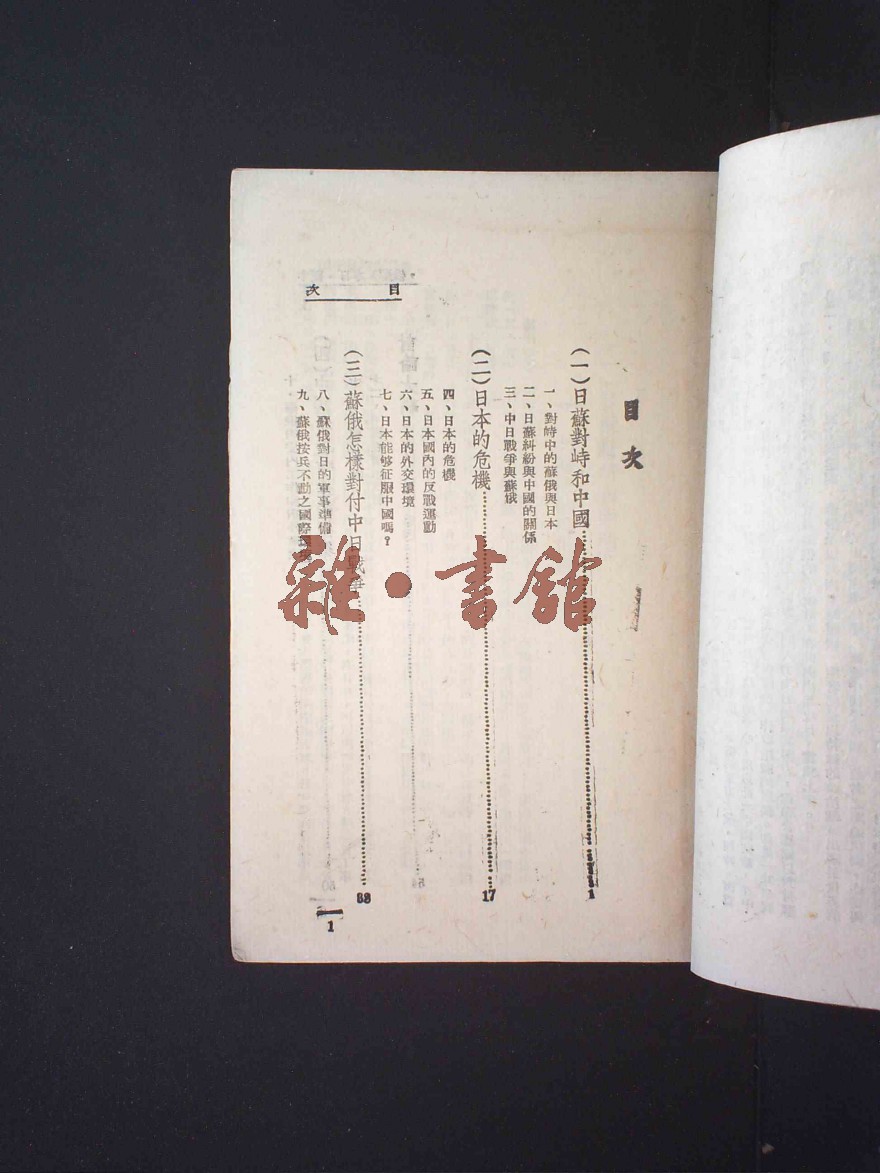 目次
(一)日蘇對峙和中國……1
一、對峙中的蘇俄與日本
二、日蘇糾紛與中國的關係
三、中日戰爭與蘇俄
(二)日本的危機……17
四、日本的危機
五、日本國內的反戰運動
六、日本的外交環境
七、日本能够征服中國嗎？
(三)蘇俄怎樣對付中日戰爭……38
八、蘇俄對日的軍事準備
九、蘇俄按兵不動之國際環境
目次
1
雜·書館